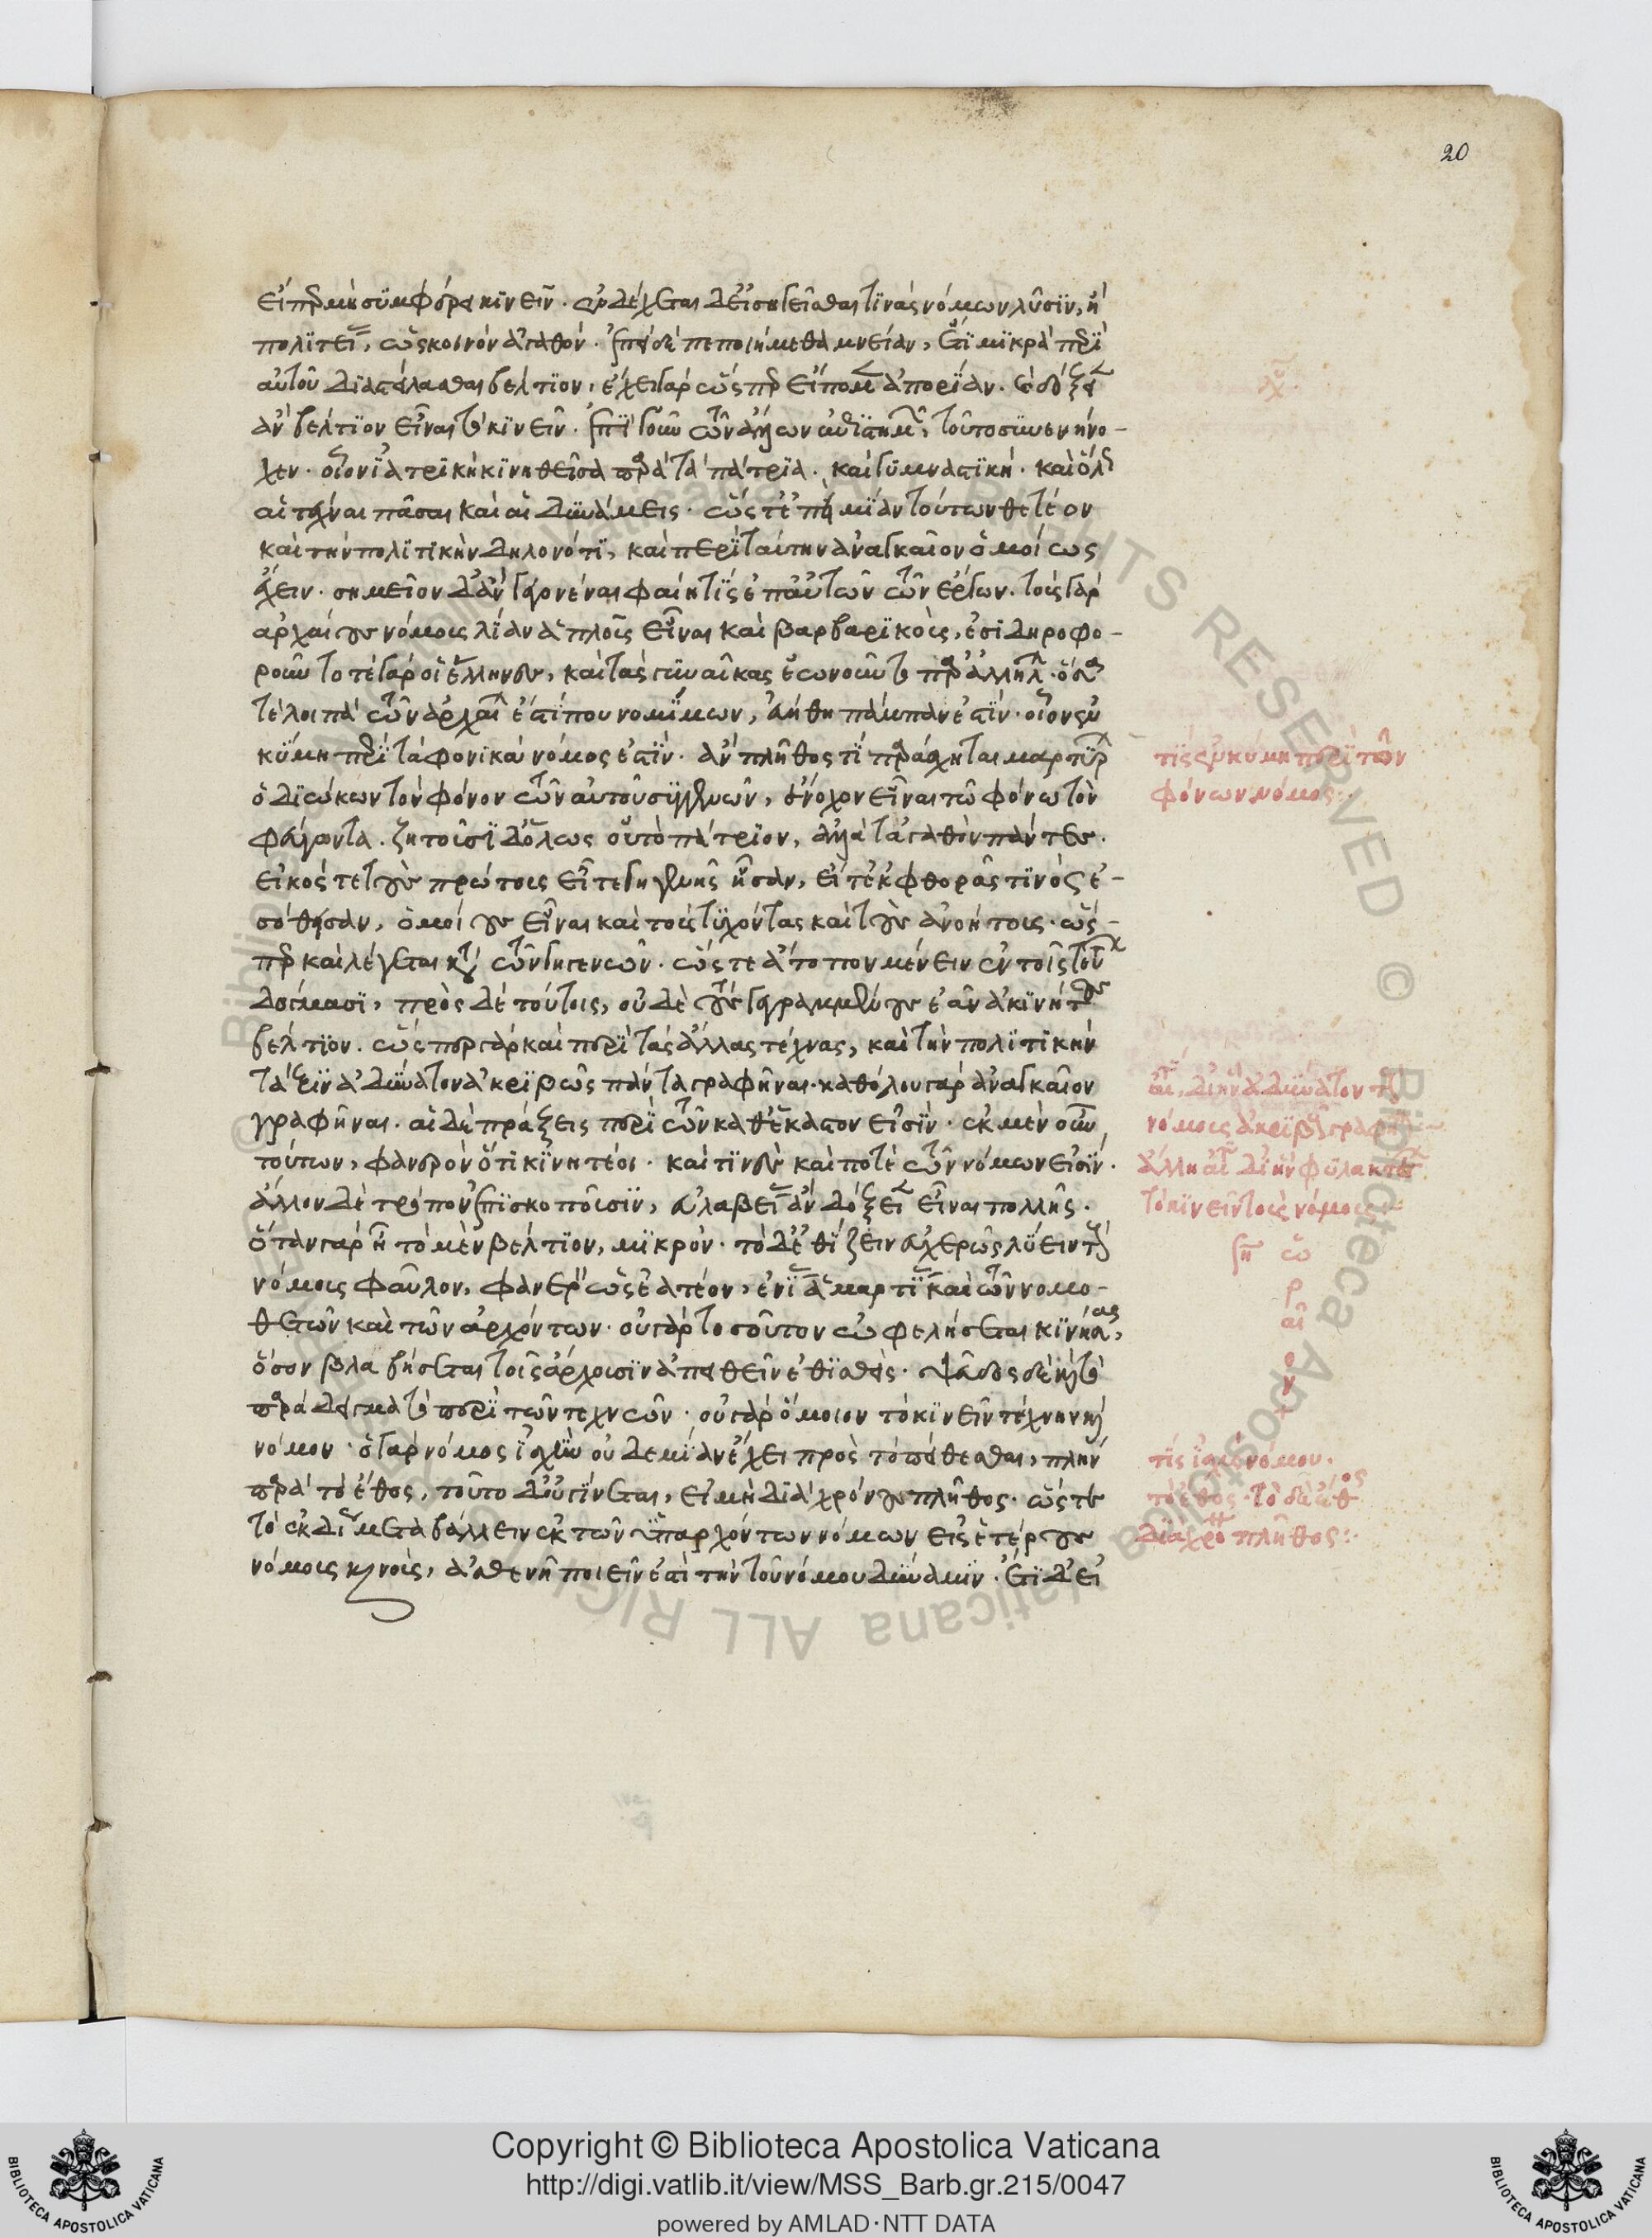 20
εἴπερ μὴ συμφέρει κινεῖν. ἐνδέχεται δ' εἰσηγεῖσθαι τινὰς νόμων λύσιν, ἢ
πολιτείας, ὡς κοινὸν ἀγαθόν. ἐπεὶ δὲ πεποιήμεθα μνείαν, ἔτι μικρὰ περὶ
αὐτοῦ διαστείλασθαι βέλτιον, ἔχει γὰρ ὥσπερ εἴπομεν ἀπορίαν. καὶ δόξειεν
ἂν βέλτιον εἶναι τὸ κινεῖν. ἐπὶ γοῦν τῶν ἄλλων ἐπιστημῶν, τοῦτο συνενήνο-
χεν. οἷον ἰατρικὴ κινηθεῖσα παρὰ τὰ πάτρια. καὶ γυμναστικὴ. καὶ ὅλως
αἱ τέχναι πᾶσαι καὶ αἱ δυνάμεις. ὥστ' ἐπεὶ μίαν τούτων θετέον
καὶ τὴν πολιτικὴν δηλονότι, καὶ περὶ ταύτην ἀναγκαῖον ὁμοίως
ἔχειν. σημεῖον δ' ἂν γεγονέναι φαίη τίς ἐπ' αὐτῶν τῶν ἔργων. τοὺς γὰρ
ἀρχαίους νόμους λίαν ἁπλοῦς εἶναι καὶ βαρβαρικοὺς, ἐσιδηροφο-
ροῦντό τε γὰρ οἱ ἕλληνες, καὶ τὰς γυναῖκας ἐωνοῦντο παρ' ἀλλήλων. ὅσα
τε λοιπὰ τῶν ἀρχαίων ἐστί που νομίμων, εὐήθη πάμπαν ἐστίν. οἷον ἐν
κύμη περὶ τὰ φονικὰ νόμος ἐστίν. ἂν πλῆθος τὶ παράσχηται μαρτύρων
ὁ διώκων τὸν φόνον τῶν αὐτοῦ συγγενῶν, ἔνοχον εἶναι τῶ φόνω τὸν
φεύγοντα. ζητοῦσι δ' ὅλως οὐ τὸ πάτριον, ἀλλὰ τἀγαθὸν πάντες.
εἰκός τε τοὺς πρώτους εἴτε γηγενεῖς ἦσαν, εἴτ' ἐκ φθορᾶς τινὸς ἐ-
σώθησαν, ὁμοίους εἶναι καὶ τοὺς τυχόντας καὶ τοὺς ἀνοήτους. ὥσ-
περ καὶ λέγεται κατὰ τῶν γηγενῶν. ὥστε ἄτοπον μένειν ἐν τοῖς τούτων
δόγμασι, πρὸς δὲ τούτοις, οὐδὲ τοὺς γεγραμμένους ἐᾶν ἀκινήτους
βέλτιον. ὥσπερ γὰρ καὶ περὶ τὰς ἄλλας τέχνας, καὶ τὴν πολιτικὴν
τάξιν ἀδύνατον ἀκριβῶς πάντα γραφῆναι. καθόλου γὰρ ἀναγκαῖον
γραφῆναι. αἱ δὲ πράξεις περὶ τῶν καθ' ἕκαστον εἰσίν. ἐκ μὲν οὖν
τούτων, φανερὸν ὅτι κινητέοι. καὶ τινὲς καὶ ποτὲ τῶν νόμων εἰσίν.
ἄλλον δὲ τρόπον ἐπισκοποῦσιν, εὐλαβείας ἂν δόξειεν εἶναι πολλῆς.
ὅταν γὰρ ἦ τὸ μὲν βέλτιον, μικρόν. τὸ δ' ἐθίζειν εὐχερῶς λύειν τοὺς
νόμους φαῦλον, φανερὸν ὡς ἐατέον, ἐνίας ἁμαρτίας καὶ τῶν νομο-
θετῶν καὶ τῶν ἀρχόντων. οὐ γὰρ τοσοῦτον ὠφελήσεται κινήσας,
ὅσον βλαβήσεται τοῖς ἄρχουσιν ἀπειθεῖν ἐθισθείς. ψεῦδος δὲ καὶ τὸ
παράδειγμα τὸ περὶ τῶν τεχνῶν. οὐ γὰρ ὅμοιον τὸ κινεῖν τέχνην καὶ
νόμον. ὁ γὰρ νόμος ἰσχὺν οὐδεμίαν ἔχει πρὸς τὸ πείθεσθαι, πλὴν
παρὰ τὸ ἔθος, τοῦτο δ' οὐ γίνεται, εἰ μὴ διὰ χρόνου πλῆθος. ὥστε
τὸ ῥαδίως μεταβάλλειν ἐκ τῶν ὑπαρχόντων νόμων εἰς ἑτέρους
νόμους καινοὺς, ἀσθενῆ ποιεῖν ἐστὶ τὴν τοῦ νόμου δύναμιν. ἔτι δ' εἰ
τίς ἐν κύμη περὶ τῶν
φόνων νόμος:
αἰτία δι' ἣν ἀδύνατον τοὺς
νόμους ἀκριβῶς γραφῆναι
ἄλλη αἰτία δι' ἣν φυλακτέον
τὸ κινεῖν τοὺς νόμους:
τίς ἰσχὺς νόμου.
τὸ ἔθος. τὸ δὲ ἔθος
διὰ χρόνου πλῆθος:
Copyright © Biblioteca Apostolica Vaticana
http://digi.vatlib.it/view/MSS_Barb.gr.215/0047
powered by AMLAD·NTT DATA
BIBLIOTECA APOSTOLICA VATICANA
BIBLIOTECA APOSTOLICA VATICANA
© Biblioteca Apostolica Vaticana ALL RIGHTS RESERVED